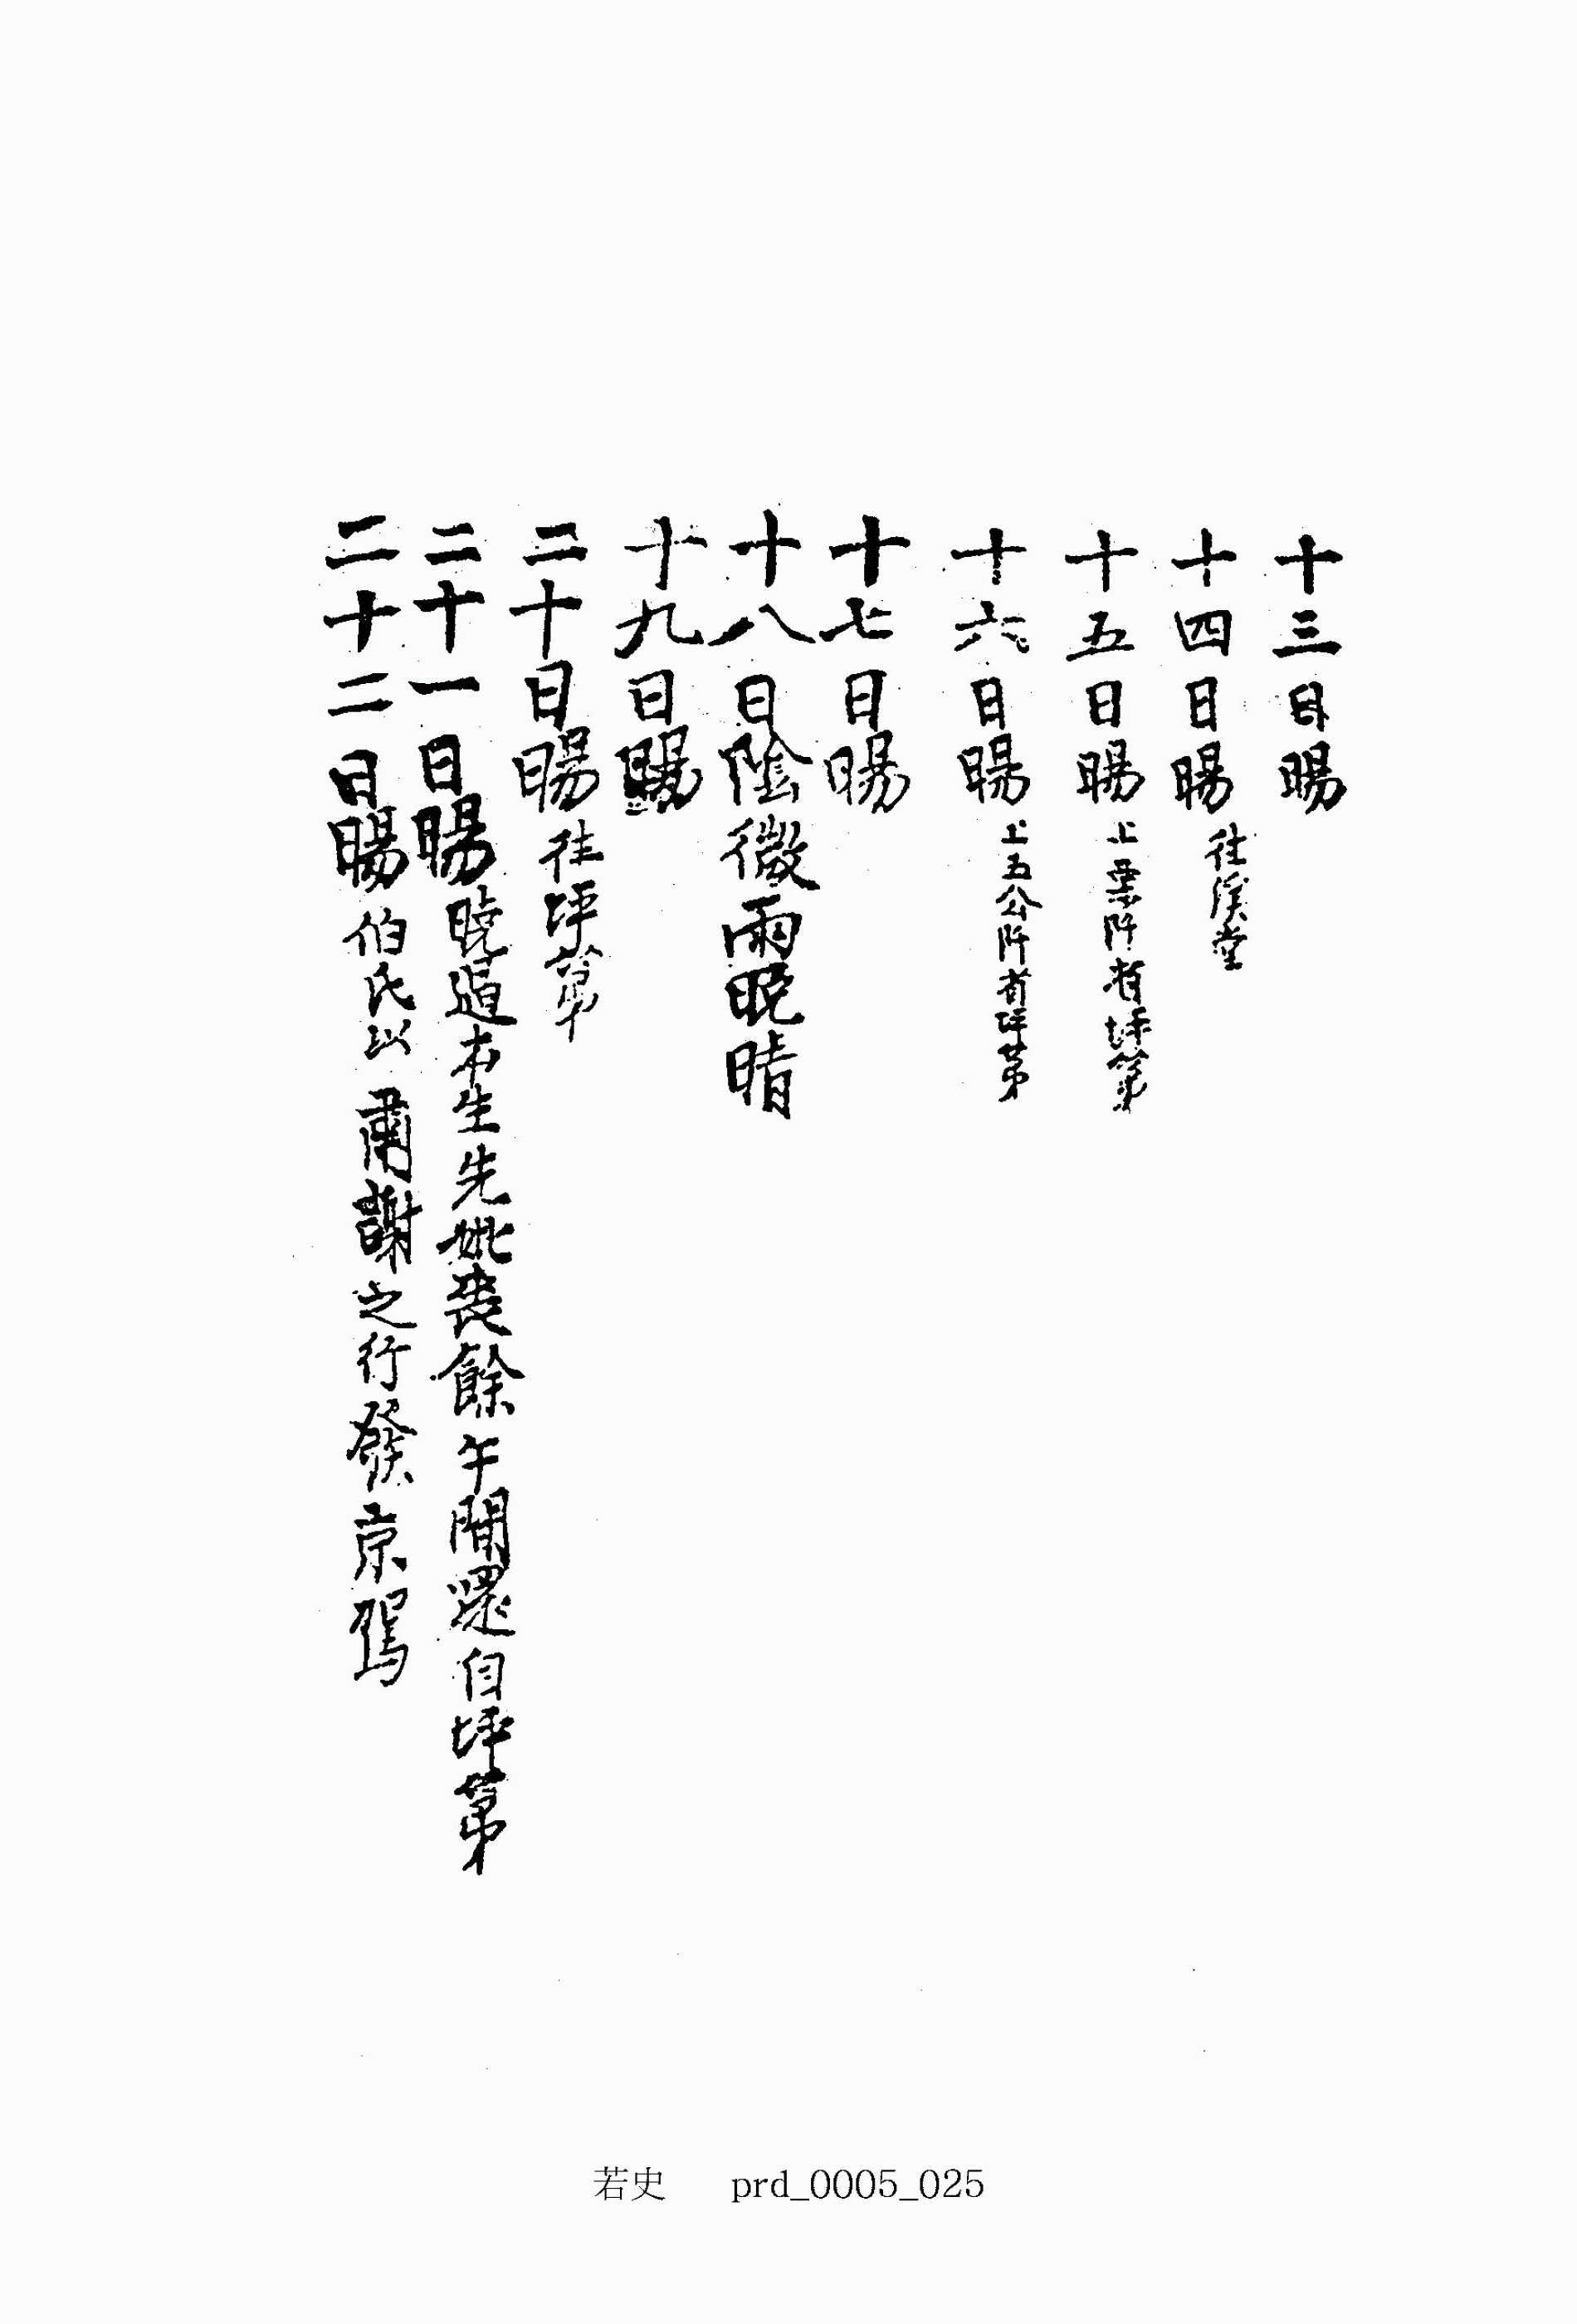 十三日暘
十四日暘 往溪堂
十五日暘 上栗阡省坪第
十六日暘 上五公阡省坪第
十七日暘
十八日陰微雨晩晴
十九日暘
二十日暘 往坪第
二十一日暘 曉過本生先妣喪餘午間還自坪第
二十二日暘 伯氏以肅謝之行發京駕
若史 prd_0005_025